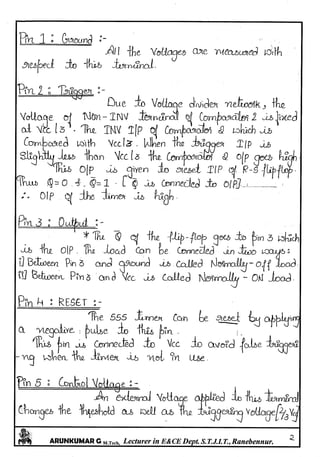 Pin 1 : Ground :-
All the Voltages are measured with
respect to this terminal.
Pin 2 : Trigger :-
Due to Voltage divider network, the
Voltage of Non-INV terminal of Comparator 2 is fixed
at Vcc/3. The INV I/P of Comparator 2 which is
Compared with Vcc/3. When the trigger I/P is
Slightly less than Vcc/3 the Comparator 2 O/P goes high
This O/P is given to reset I/P of R-S flipflop.
Thus Q=0 & Q̅=1 - [Q̅ is connected to O/P]
∴ O/P of the timer is high.
Pin 3 : Output :-
* The Q̅ of the flip-flop goes to pin 3 which
is the O/P. The load can be connected in two ways:
i] Between Pin 3 and ground is called Normally-off load
ii] Between Pin 3 and Vcc is called Normally-ON load.
Pin 4 : RESET :-
The 555 timer can be reset by applying
a negative pulse to this pin.
This pin is connected to Vcc to avoid false triggeri
-ng when the timer is not in use.
Pin 5 : Control Voltage :-
An external Voltage applied to this terminal
Changes the threshold as well as the triggering voltage [2/3 Vcc]
ARUNKUMAR G M.Tech, Lecturer in E&CE Dept. S.T.J.I.T., Ranebennur.
2